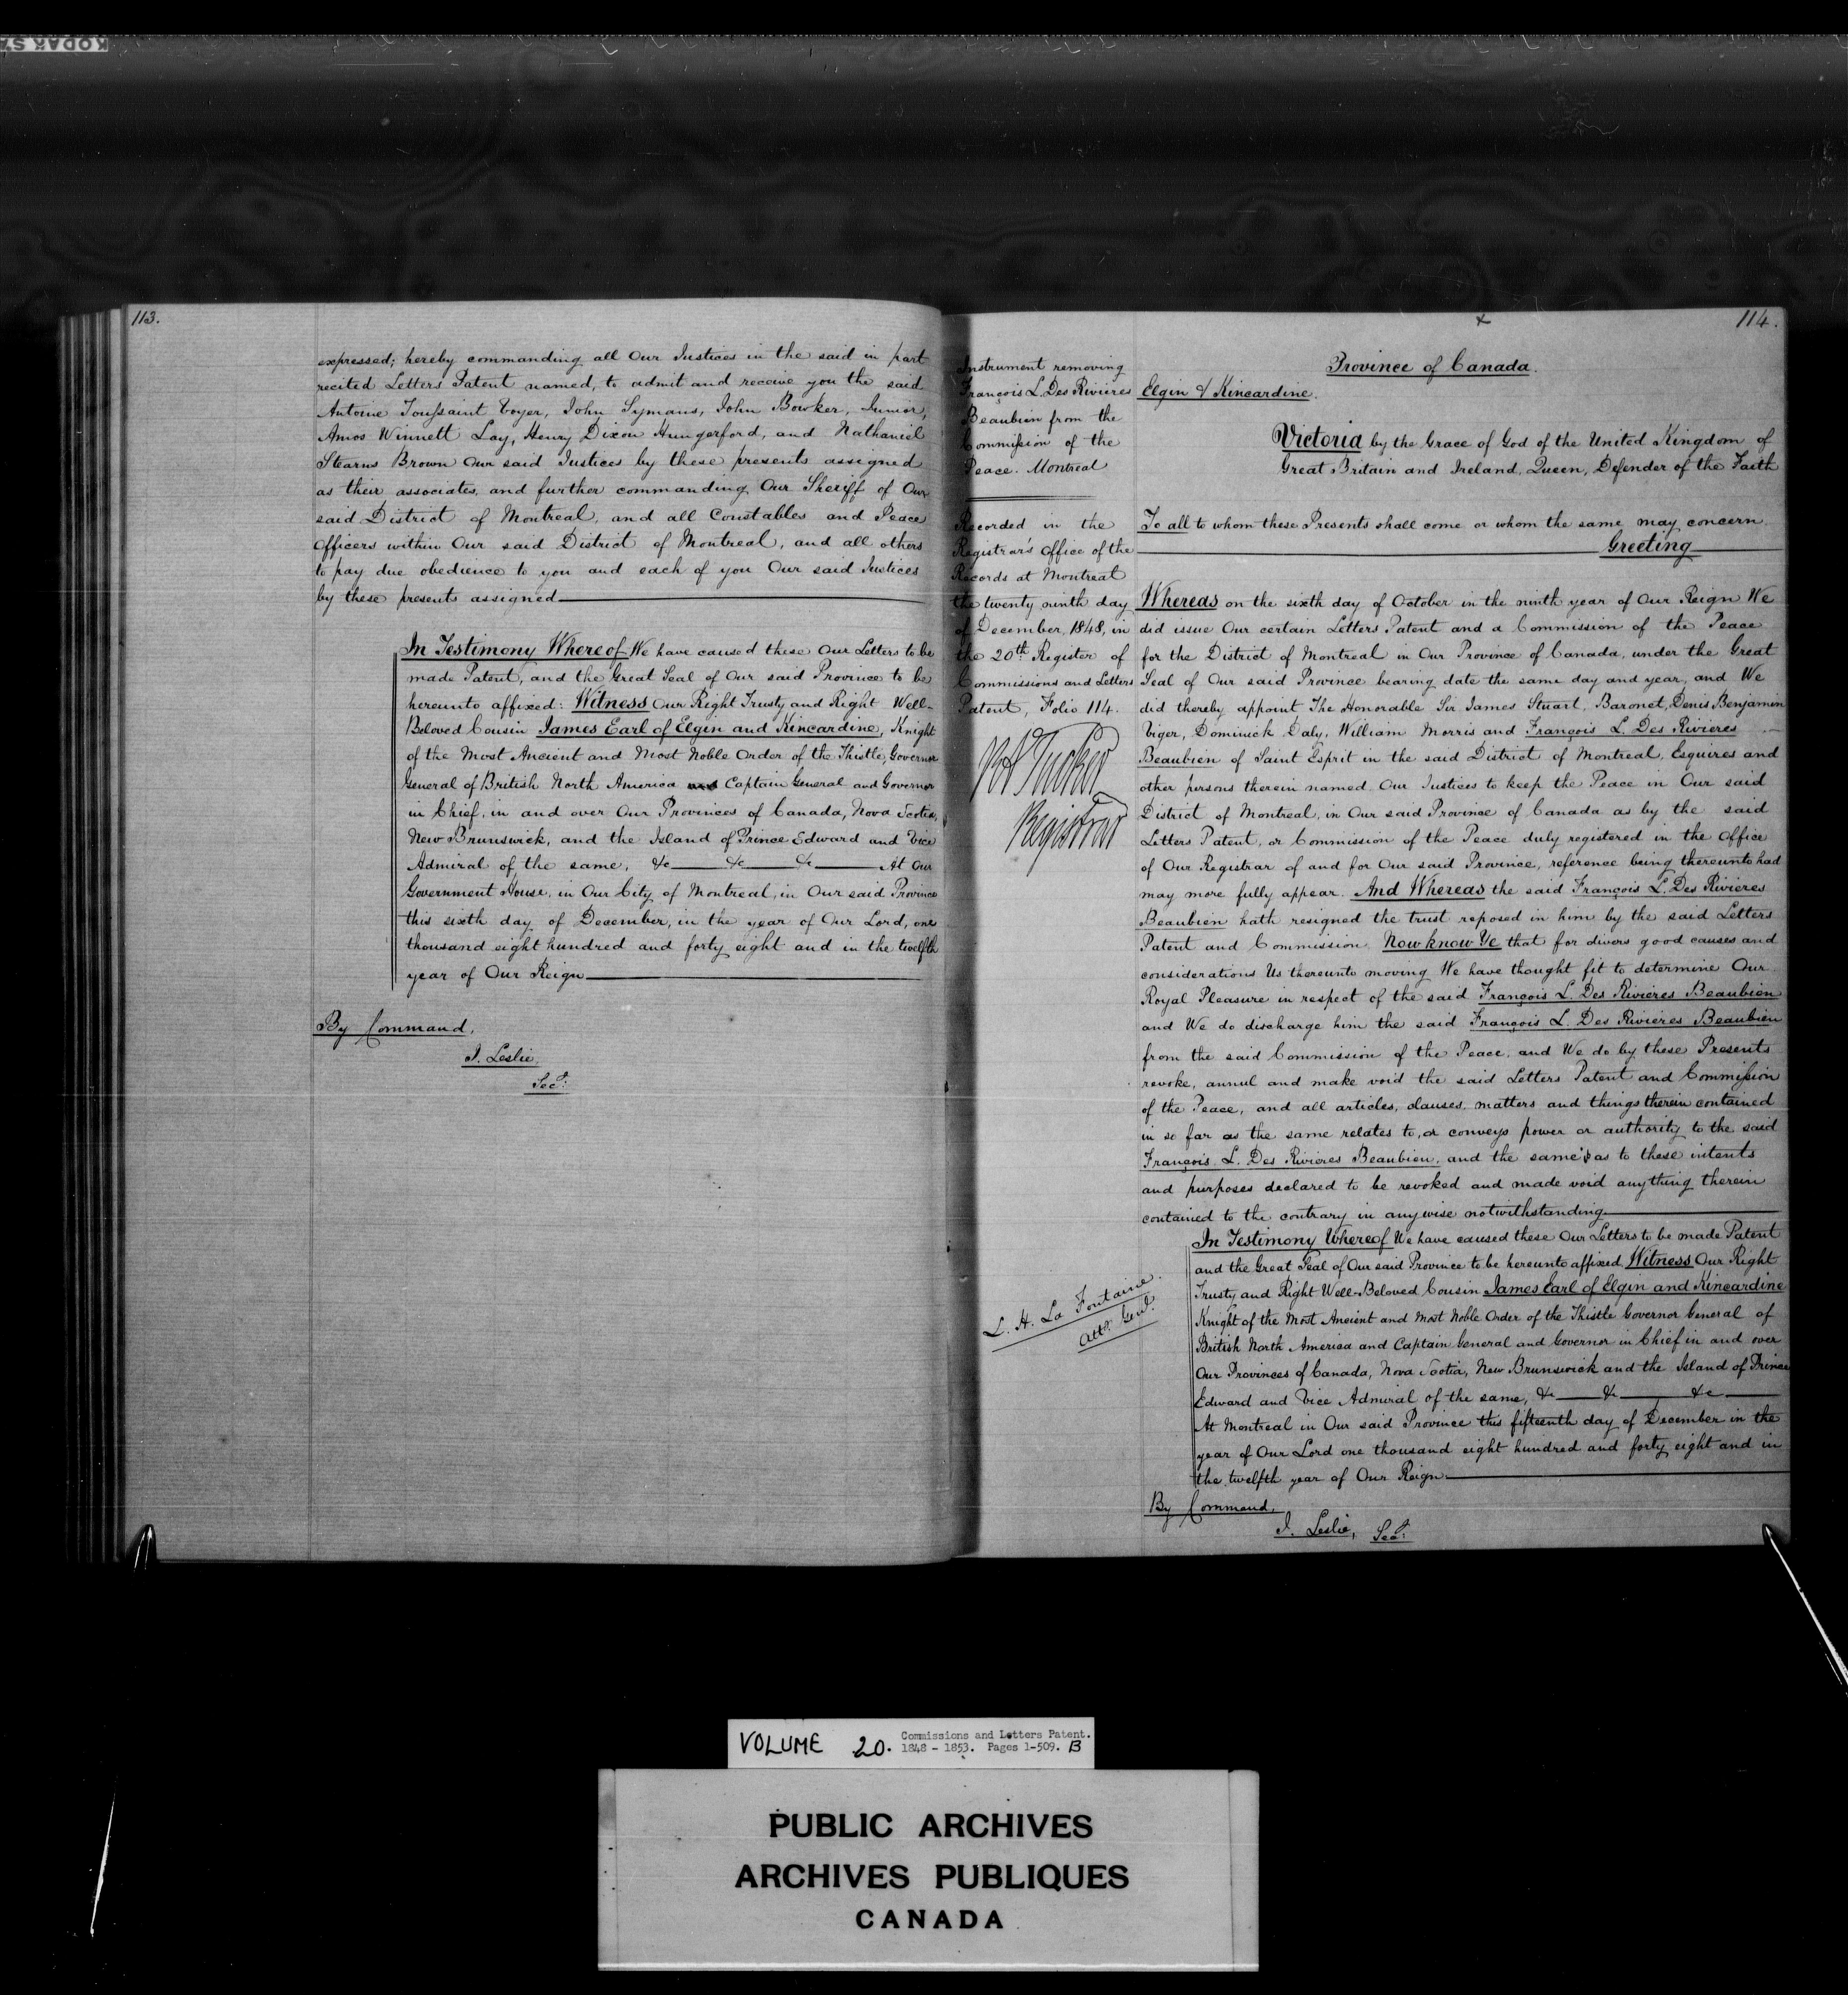 KODAK S
113.
expressed; hereby commanding all Our Justices in the said in part
recited Letters Patent named, to admit and receive you the said
Antoine Toussaint Voyer, John Symans, John Bowker, Junior,
Amos Winnett Lay, Henry Dixon Hungerford, and Nathaniel
Stearns Brown Our said Justices by these presents assigned
as their associates, and further commanding Our Sheriff of Our
said District of Montreal, and all Constables and Peace
Officers within Our said District of Montreal, and all others
to pay due obedience to you and each of you Our said Justices
by these presents assigned
In Testimony Whereof We have caused these Our Letters to be
made Patent, and the Great Seal of Our said Province to be
hereunto affixed: Witness Our Right Trusty and Right Well-
Beloved Cousin James Earl of Elgin and Kincardine, Knight
of the Most Ancient and Most Noble Order of the Thistle, Governor
General of British North America and Captain General and Governor
in Chief, in and over Our Provinces of Canada, Nova Scotia,
New Brunswick, and the Island of Prince Edward and Vice
Admiral of the same, &c &c &c At Our
Government House, in Our City of Montreal, in Our said Province
this sixth day of December, in the year of Our Lord, one
thousand eight hundred and forty eight and in the twelfth
year of Our Reign
By Command,
J. Leslie
Secy:
114.
Instrument removing
François L. Des Rivieres
Beaubien from the
Commission of the
Peace. Montreal
Recorded in the
Registrar's Office of the
Records at Montreal
the twenty ninth day
of December, 1848, in
the 20th Register of
Commissions and Letters
Patent, Folio 114.
RA Tucker
Registrar
L. H. La Fontaine.
Atty. Genl.
Province of Canada.
Elgin & Kincardine.
Victoria by the Grace of God of the United Kingdom of
Great Britain and Ireland, Queen, Defender of the Faith
To all to whom these Presents shall come or whom the same may concern.
Greeting
Whereas on the sixth day of October in the ninth year of Our Reign We
did issue Our certain Letters Patent and a Commission of the Peace
for the District of Montreal in Our Province of Canada, under the Great
Seal of Our said Province bearing date the same day and year, and We
did thereby appoint The Honorable Sir James Stuart, Baronet, Denis Benjamin
Viger, Dominick Daly, William Morris and François L. Des Rivieres
Beaubien of Saint Esprit in the said District of Montreal, Esquires and
other persons therein named Our Justices to keep the Peace in Our said
District of Montreal, in Our said Province of Canada as by the said
Letters Patent, or Commission of the Peace duly registered in the Office
of Our Registrar of and for Our said Province, reference being thereunto had
may more fully appear. And Whereas the said François L. Des Rivieres
Beaubien hath resigned the trust reposed in him by the said Letters
Patent and Commission. Now know Ye that for divers good causes and
considerations Us thereunto moving We have thought fit to determine Our
Royal Pleasure in respect of the said François L. Des Rivieres Beaubien
and We do discharge him the said François L. Des Rivieres Beaubien
from the said Commission of the Peace, and We do by these Presents
revoke, annul and make void the said Letters Patent and Commission
of the Peace, and all articles, clauses, matters and things therein contained
in so far as the same relates to, or conveys power or authority to the said
François L. Des Rivieres Beaubien, and the same is as to these intents
and purposes declared to be revoked and made void anything therein
contained to the contrary in any wise notwithstanding.
In Testimony Whereof We have caused these Our Letters to be made Patent
and the Great Seal of Our said Province to be hereunto affixed, Witness Our Right
Trusty and Right Well-Beloved Cousin James Earl of Elgin and Kincardine
Knight of the Most Ancient and Most Noble Order of the Thistle Governor General of
British North America and Captain General and Governor in Chief in and over
Our Provinces of Canada, Nova Scotia, New Brunswick and the Island of Prince
Edward and Vice Admiral of the same, &c &c &c
At Montreal in Our said Province this fifteenth day of December in the
year of Our Lord one thousand eight hundred and forty eight and in
the twelfth year of Our Reign
By Command,
J. Leslie, Secy:
VOLUME 20. Commissions and Letters Patent.
1848 - 1853. Pages 1-509. B
PUBLIC ARCHIVES
ARCHIVES PUBLIQUES
CANADA